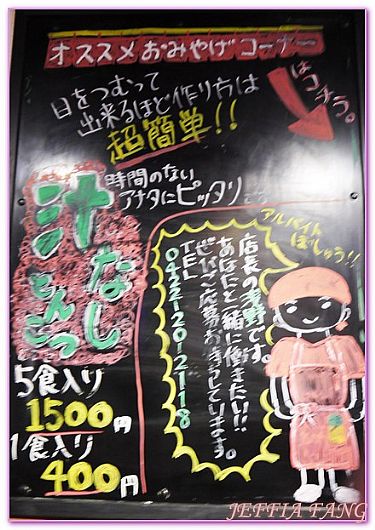 オススメおみやげコーナー
目をつむって
出来るほど作り方は
超簡単!!
はっそう。
時間のない
アナタにピッタリ
汁なし
とんこつ
5食入り
1500円
1食入り
400円
アルバイト
ぼしゅう!!
店長の浅野です。
あなたと一緒に働きたい!!
ぜひご応募お待ちしています。
TEL
0422-20-2118
JEFFIA FANG